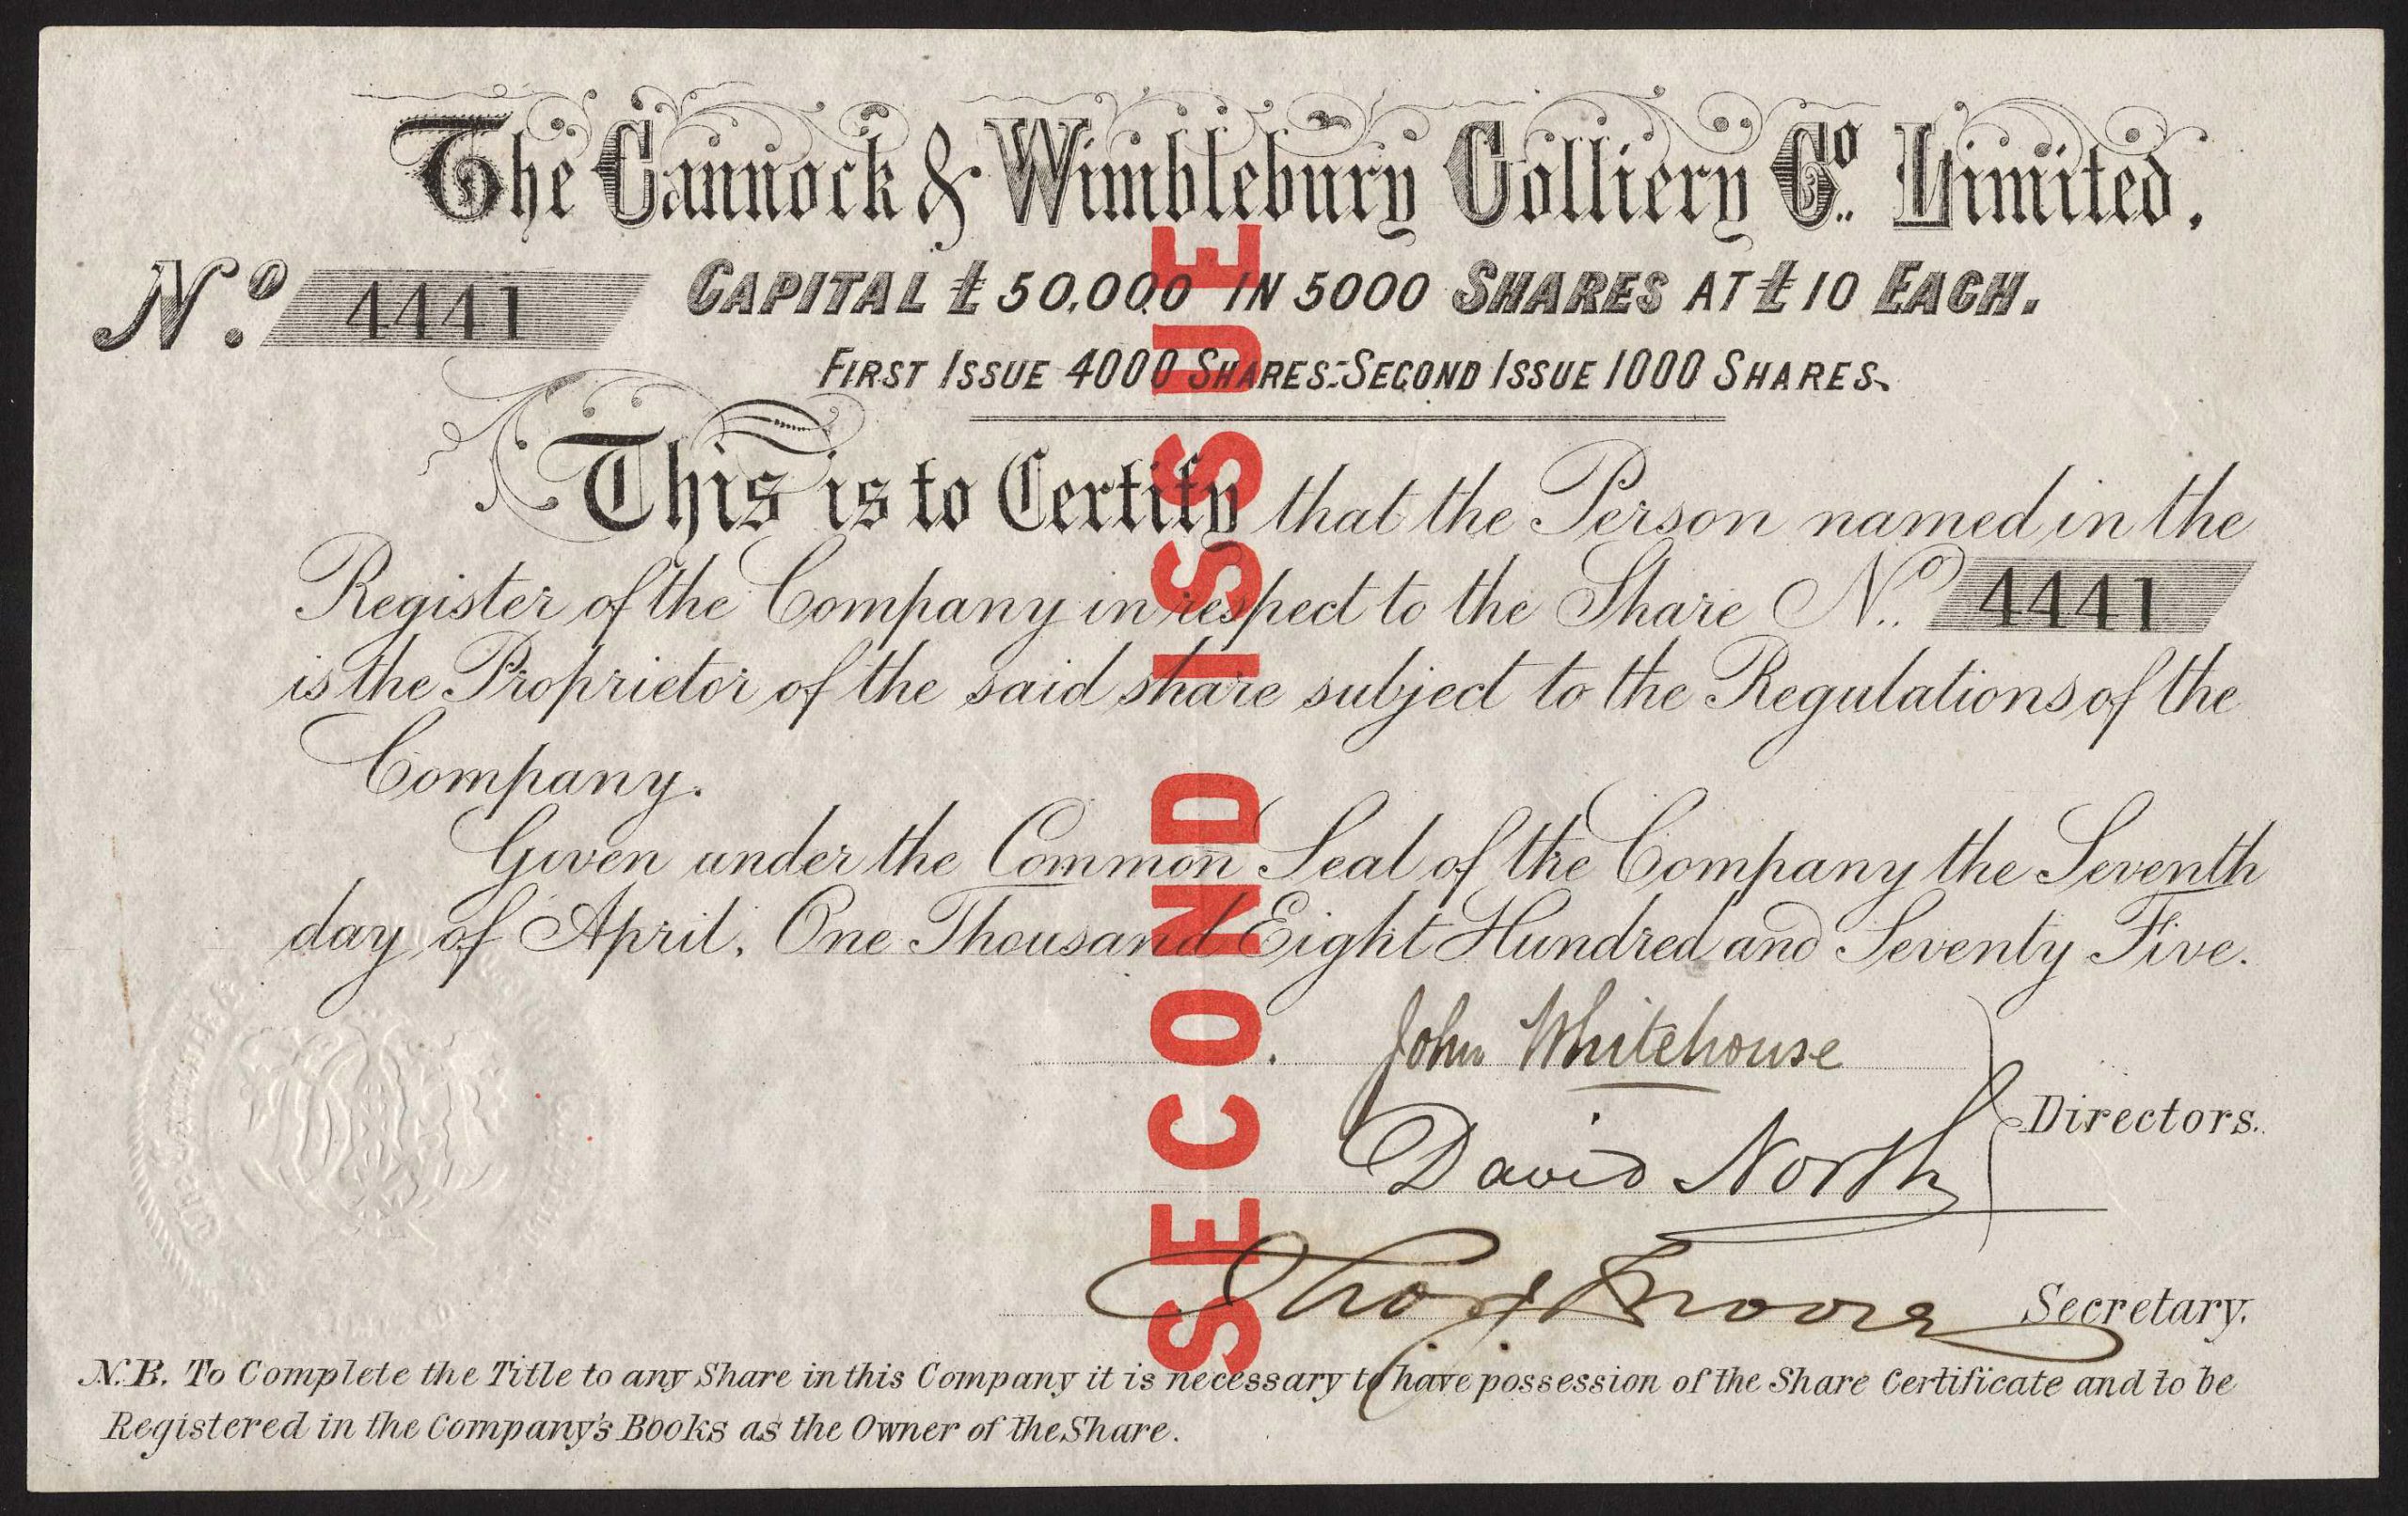 The Cannock & Wimblebury Colliery Co. Limited.
No. 4441
CAPITAL £50,000 IN 5000 SHARES AT £10 EACH.
FIRST ISSUE 4000 SHARES. SECOND ISSUE 1000 SHARES.
This is to Certify that the Person named in the
Register of the Company in respect to the Share No. 4441
is the Proprietor of the said share subject to the Regulations of the
Company.
Given under the Common Seal of the Company the Seventh
day of April, One Thousand Eight Hundred and Seventy Five.
SECOND ISSUE
John Whitehouse
David North
Directors.
Thos
Secretary.
N.B. To Complete the Title to any Share in this Company it is necessary to have possession of the Share Certificate and to be
Registered in the Company's Books as the Owner of the Share.